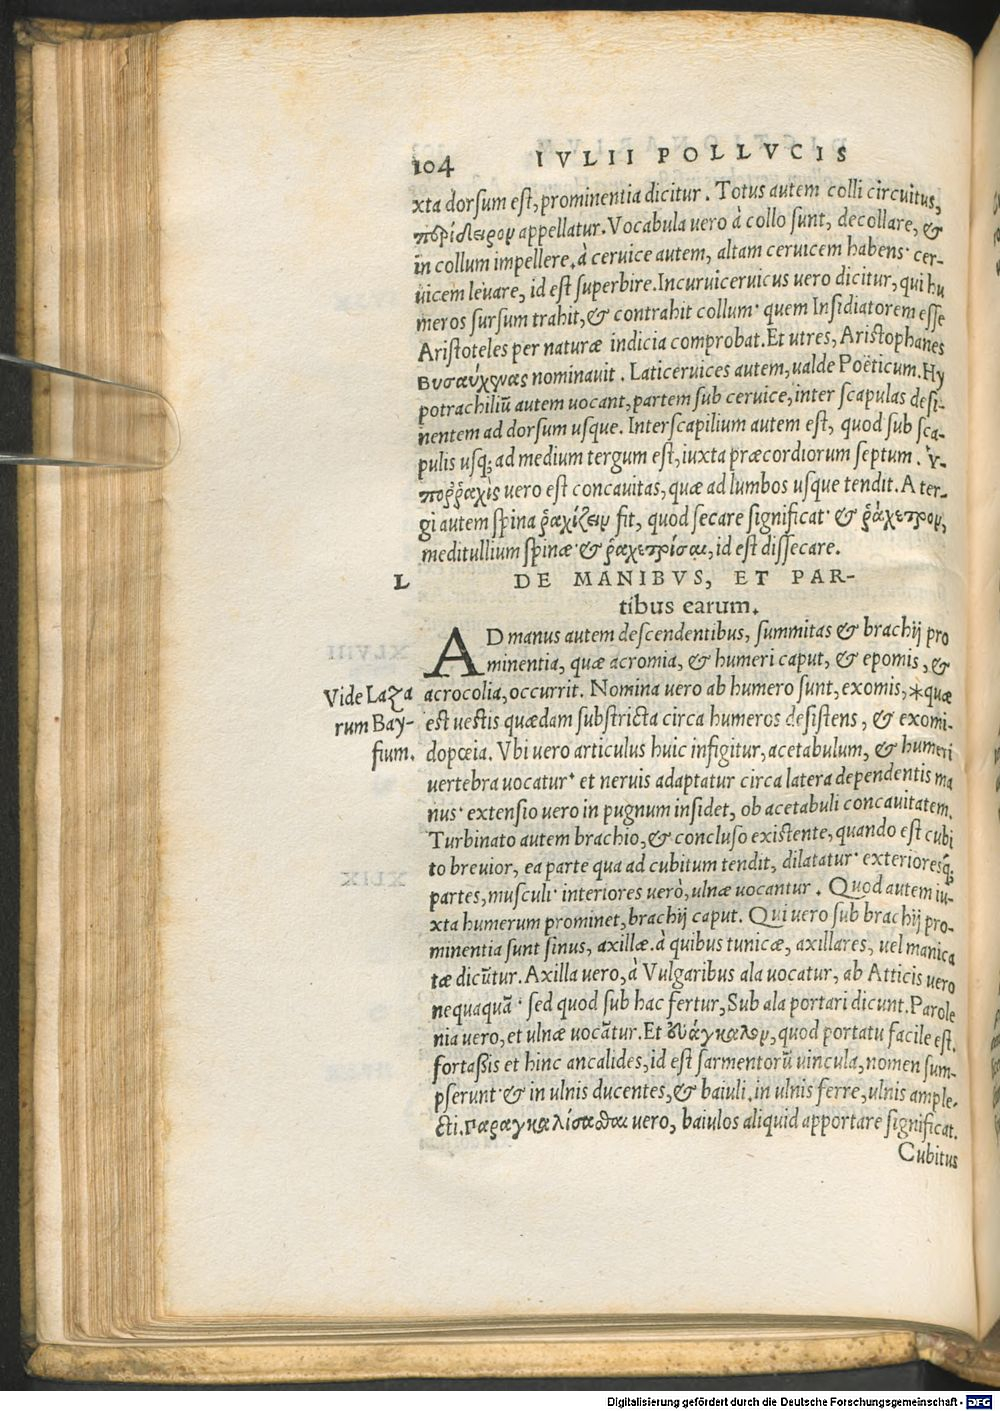 104 IVLII POLLVCIS
xta dorsum est, prominentia dicitur. Totus autem colli circuitus,
περίδειρον appellatur. Vocabula uero à collo sunt, decollare, &
in collum impellere. à ceruice autem, altam ceruicem habens· cer-
uicem leuare, id est superbire. Incuruiceruicus uero dicitur, qui hu
meros sursum trahit, & contrahit collum· quem Insidiatorem esse
Aristoteles per naturæ indicia comprobat. Et utres, Aristophanes
Βυσαύχενας nominauit. Laticeruices autem, ualde Poëticum. Hy
potrachiliū autem uocant, partem sub ceruice, inter scapulas desi-
nentem ad dorsum usque. Interscapilium autem est, quod sub sca-
pulis usq; ad medium tergum est, iuxta præcordiorum septum. ὑ-
ποῤῥαχὶς uero est concauitas, quæ ad lumbos usque tendit. A ter-
gi autem spina ῥαχίζειν fit, quod secare significat· & ῥάχετρον,
meditullium spinæ· & ῥαχετρίσαι, id est dissecare.
L DE MANIBVS, ET PAR-
tibus earum.
AD manus autem descendentibus, summitas & brachij pro
minentia, quæ acromia, & humeri caput, & epomis, &
Vide Laza acrocolia, occurrit. Nomina uero ab humero sunt, exomis, *quæ
rum Bay- est uestis quædam substricta circa humeros desistens, & exomi-
fium. dopœia. Vbi uero articulus huic infigitur, acetabulum, & humeri
uertebra uocatur· et neruis adaptatur circa latera dependentis ma
nus· extensio uero in pugnum insidet, ob acetabuli concauitatem.
Turbinato autem brachio, & concluso existente, quando est cubi
to breuior, ea parte qua ad cubitum tendit, dilatatur· exterioresq́;
partes, musculi· interiores uerò, ulnæ uocantur. Quod autem iu-
xta humerum prominet, brachij caput. Qui uero sub brachij pro-
minentia sunt sinus, axillæ. à quibus tunicæ, axillares, uel manica
tæ dicūtur. Axilla uero, à Vulgaribus ala uocatur, ab Atticis uero
nequaquā· sed quod sub hac fertur, Sub ala portari dicunt. Parole
nia uero, et ulnæ uocātur. Et εὐάγκαλον, quod portatu facile est.
fortassis et hinc ancalides, id est sarmentorū uincula, nomen sum-
pserunt· & in ulnis ducentes, & baiuli. in ulnis ferre, ulnis ample-
cti. παραγκαλίσασθαι uero, baiulos aliquid apportare significat.
Cubitus
Digitalisierung gefördert durch die Deutsche Forschungsgemeinschaft - DFG